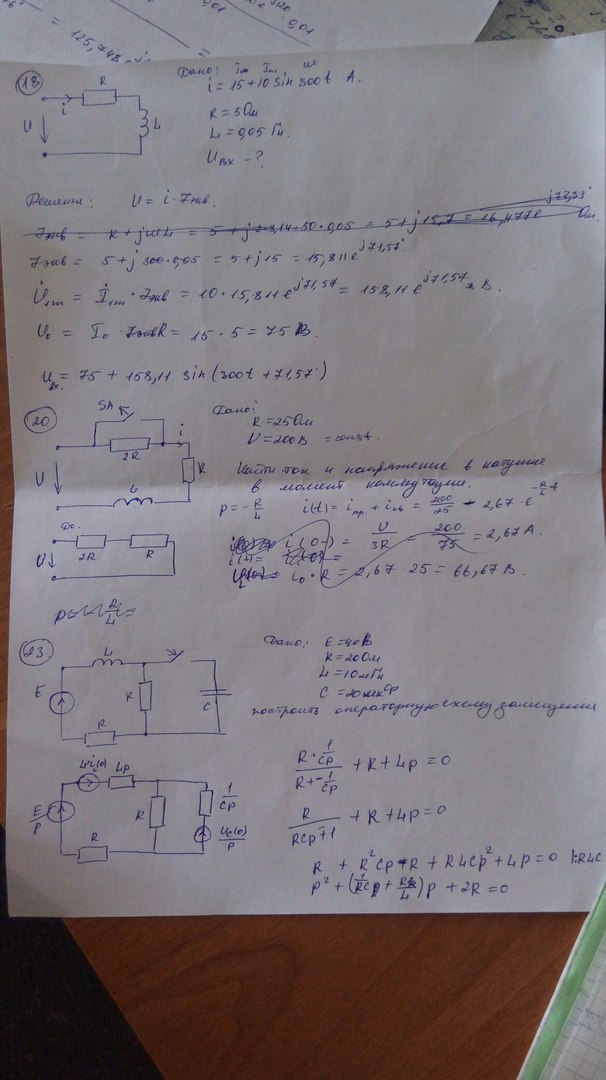 = 125,748
0,01
(18) R
i
U
L
Дано: Im Im ω
i = 15 + 10 sin 300t А.
R = 5 Ом
L = 0,05 Гн.
Uвх - ?
Решение: U = i · Zэкв.
Zэкв = R + jωL = 5 + j 2·3,14·50·0,05 = 5 + j15,7 = 16,477e^j72,33 Ом.
Zэкв = 5 + j 300·0,05 = 5 + j15 = 15,811e^j71,57°
U̇1m = İ1m · Zэкв = 10 · 15,811e^j71,57 = 158,11 e^j71,57° В.
U0 = I0 · R = 15 · 5 = 75 В.
Uвх. = 75 + 158,11 sin(300t + 71,57°)
(20) SA
2R
i
U
R
L
Дано:
R = 25 Ом
U = 200 В. = const.
Найти ток и напряжение в катушке
в момент коммутации.
p = -R/L
i(t) = iпр. + iсв = 200/25 - 2,67 · e^-R/L t
До.
U 2R R
i(0-) = U/3R = 200/75 = 2,67 А.
i0 · R = 2,67 · 25 = 66,67 В.
(23) L
E
R
R
C
Дано: E = 40 В
R = 20 Ом
L = 10 мГн
C = 20 мкФ
построить операторную схему замещения
L·i(0) Lp
E/p
R
R
1/Cp
Uc(0)/p
(R · 1/Cp)/(R + 1/Cp) + R + Lp = 0
R/(RCp+1) + R + Lp = 0
R + R²Cp + R + RLCp² + Lp = 0 |:RLC
p² + (1/RC + R/L)p + 2R = 0